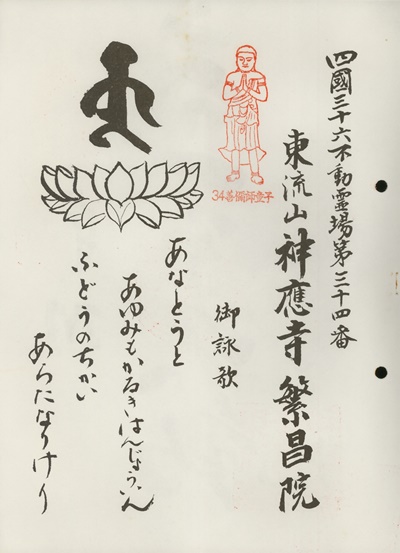 四國三十六不動霊場第三十四番
東流山神應寺繁昌院
34善偈師童子
御詠歌
あなとうと
あゆみもかるきはんじょういん
ふどうのちかい
あらたなりけり